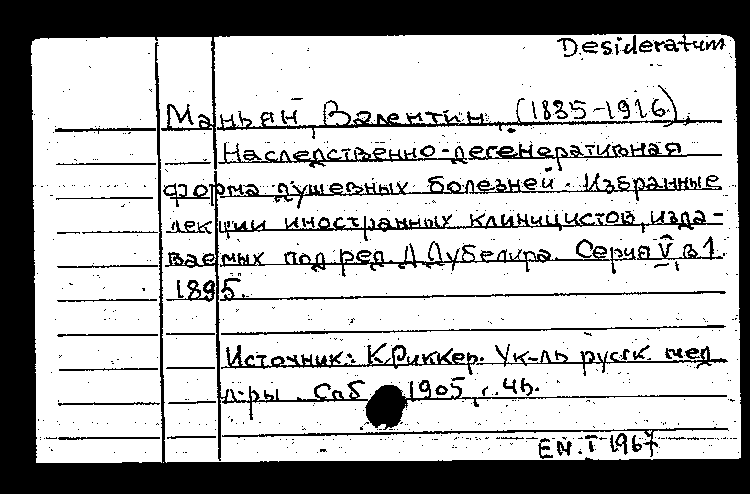 Desideratum
Маньян, Валентин, (1835-1916),
Наследственно-дегенеративная
форма душевных болезней. Избранные
лекции иностранных клиницистов, изда-
ваемых под ред. Д. Дубелира. Серия V, в 1.
1895.
Источник: К. Риккер. Ук-ль русск. мед
л-ры. Спб 1905, с. 46.
EN. I 1967